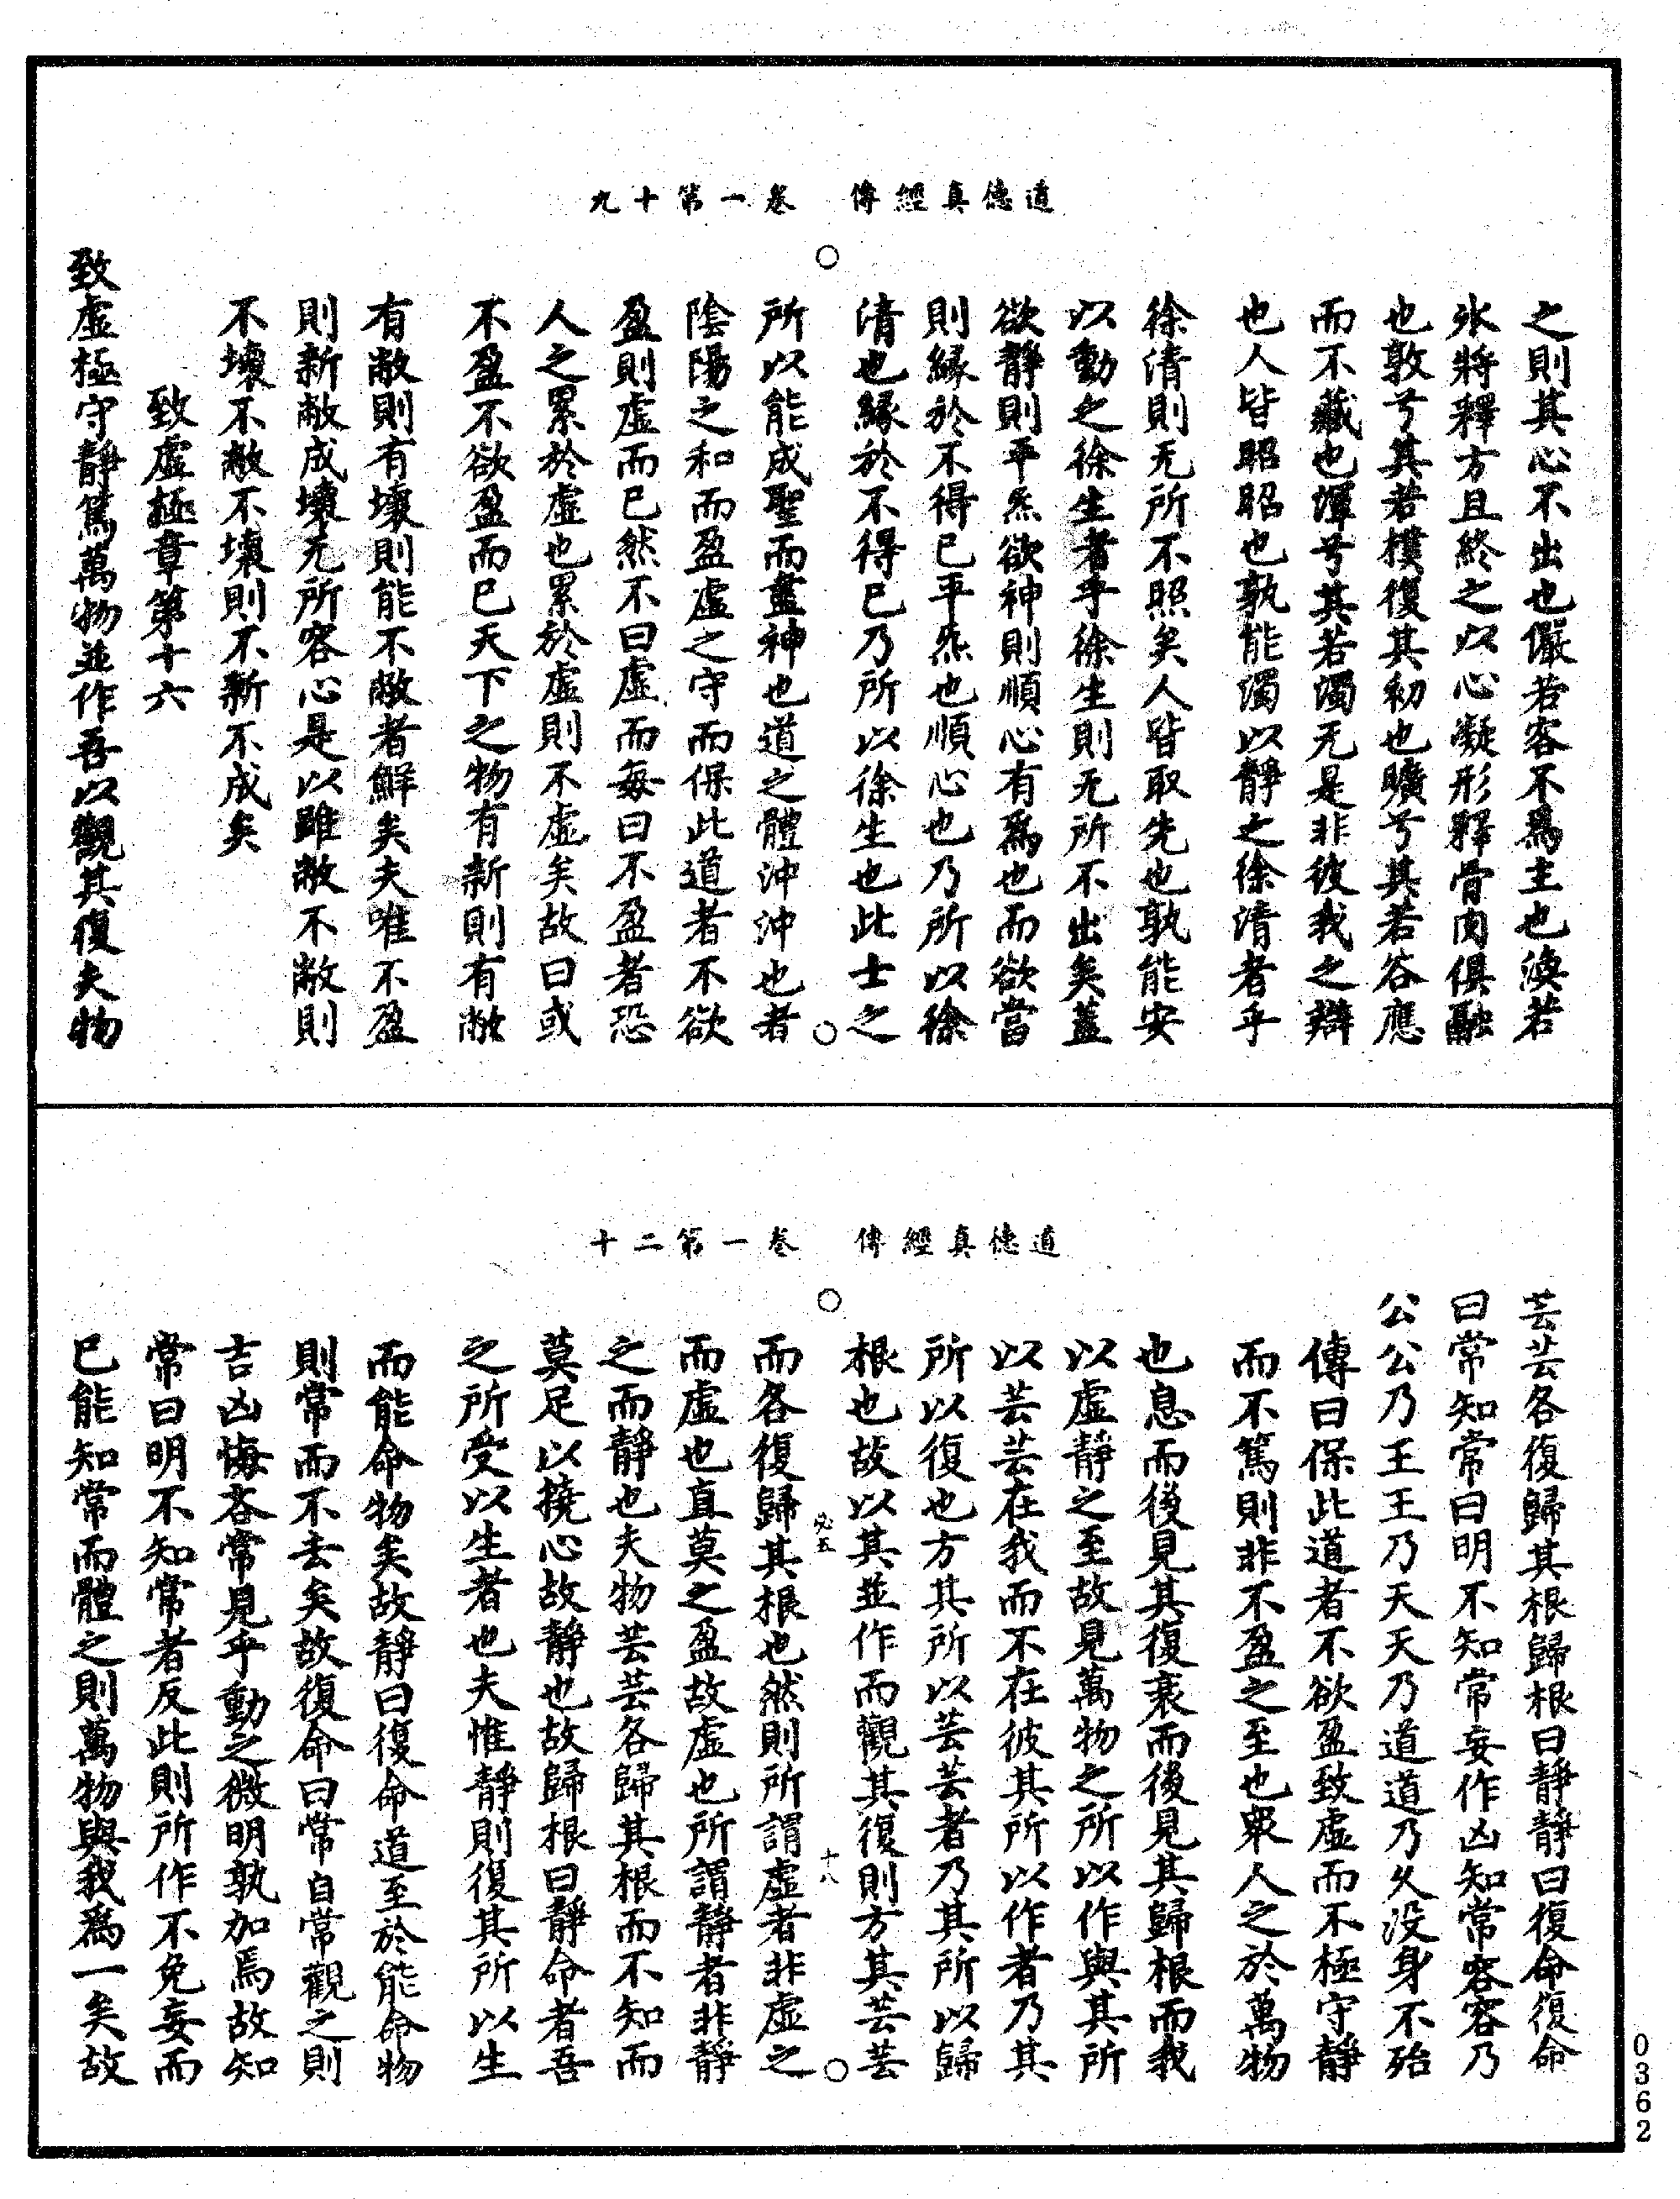 道德真經傳　卷一第十九
之則其心不出也儼若客不爲主也渙若
氷將釋方且終之以心凝形釋骨肉俱融
也敦兮其若樸復其初也曠兮其若谷應
而不藏也渾兮其若濁无是非彼我之辯
也人皆昭昭也孰能濁以靜之徐清者乎
徐清則无所不照矣人皆取先也孰能安
以動之徐生者乎徐生則无所不出矣蓋
欲靜則平炁欲神則順心有爲也而欲當
則緣於不得已平炁也順心也乃所以徐
清也緣於不得已乃所以徐生也此士之
所以能成聖而盡神也道之體沖沖也者
陰陽之和而盈虛之守而保此道者不欲
盈則虛而已然不曰虛而每曰不盈者恐
人之累於虛也累於虛則不虛矣故曰或
不盈不欲盈而已天下之物有新則有敝
有敝則有壞則能不敝者鮮矣夫唯不盈
則新敝成壞无所容心是以雖敝不敝則
不壞不敝不壞則不新不成矣
致虛極章第十六
致虛極守靜篤萬物並作吾以觀其復夫物
道德真經傳　卷一第二十
芸芸各復歸其根歸根曰靜靜曰復命復命
曰常知常曰明不知常妄作凶知常容容乃
公公乃王王乃天天乃道道乃久没身不殆
傳曰保此道者不欲盈致虛而不極守靜
而不篤則非不盈之至也衆人之於萬物
也息而後見其復衰而後見其歸根而我
以虛靜之至故見萬物之所以作與其所
以芸芸在我而不在彼其所以作者乃其
所以復也方其所以芸芸者乃其所以歸
根也故以其並作而觀其復則方其芸芸
必五　十八
而各復歸其根也然則所謂虛者非虛之
而虛也直莫之盈故虛也所謂靜者非靜
之而靜也夫物芸芸各歸其根而不知而
莫足以撓心故靜也故歸根曰靜命者吾
之所受以生者也夫惟靜則復其所以生
而能命物矣故靜曰復命道至於能命物
則常而不去矣故復命曰常自常觀之則
吉凶悔吝常見乎動之微明孰加焉故知
常曰明不知常者反此則所作不免妄而
已能知常而體之則萬物與我爲一矣故
0362